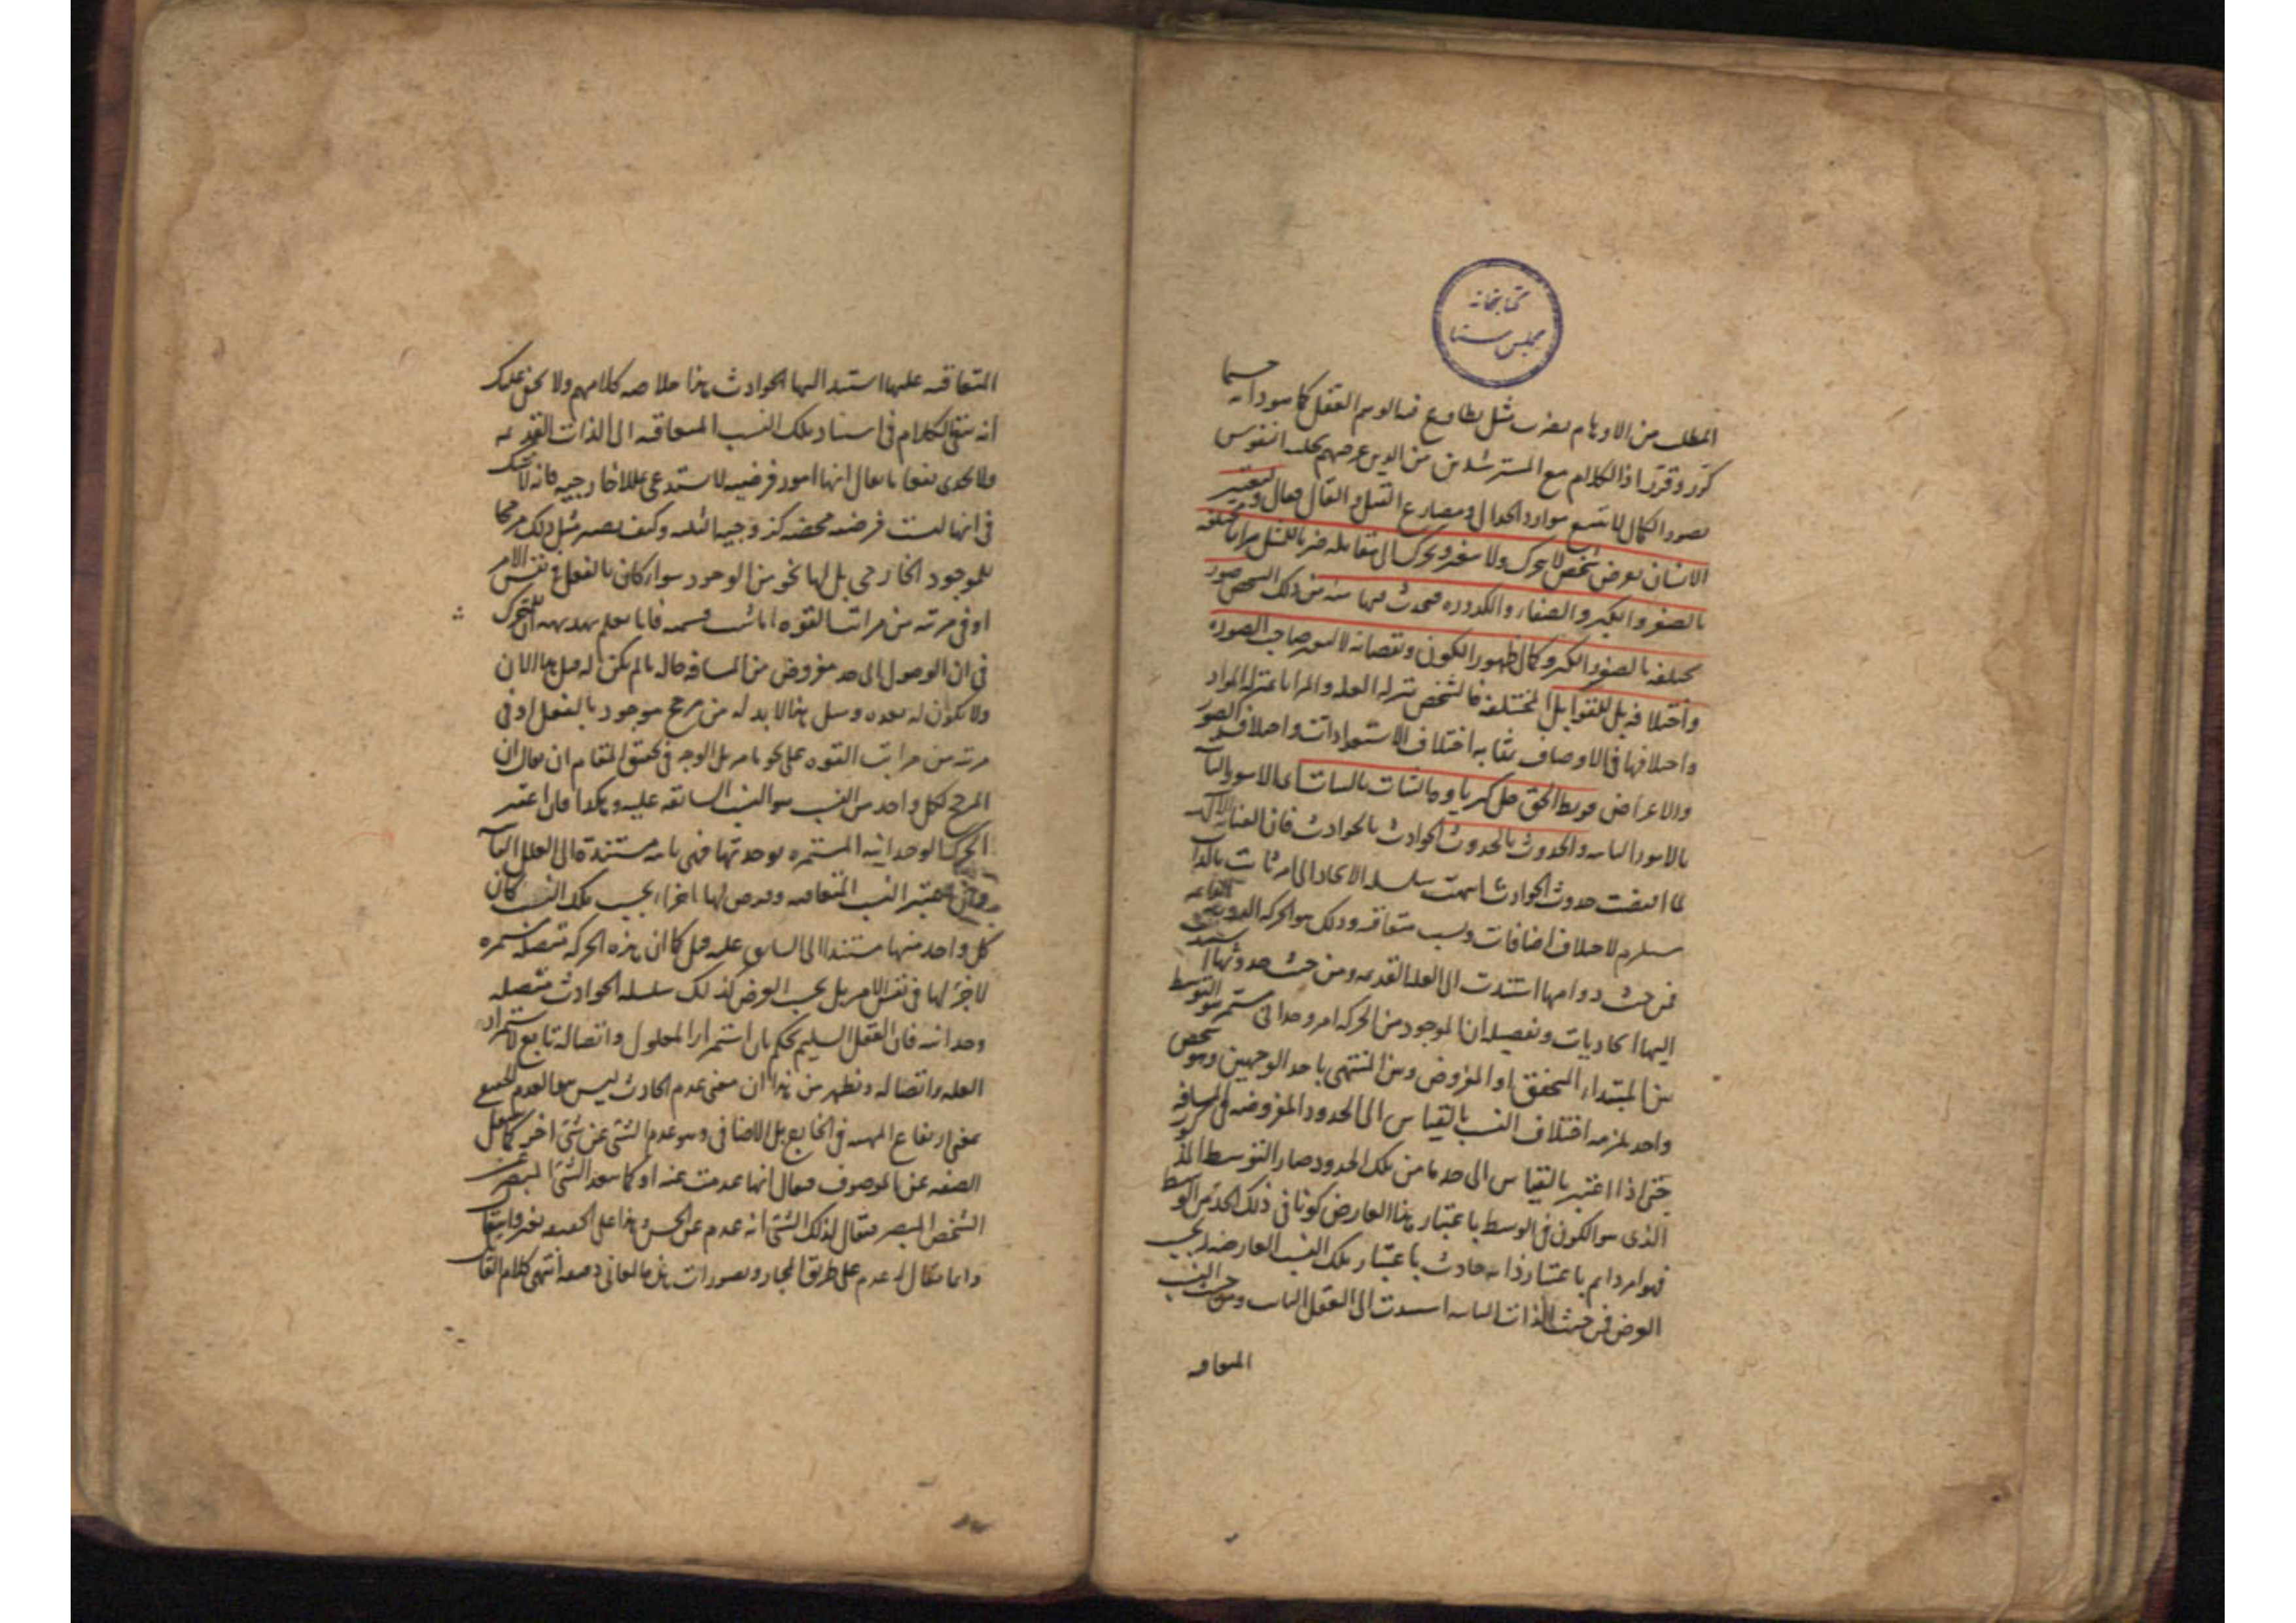 كتابخانه
مجلس سنا
المطلب من الاوهام بضرب مثل يطاوع فيه الوهم العقل كما هو دابه حسبما
كرّر وقرّر اذ الكلام مع المسترشدين من الذين غرضهم تحليه النفوس
بصور الكمال لا تتبع موارد الجدال ومصارع القيل والقال فقال وليعتبر
الانسان بعرض شخص لا يتحرك ولا يتغير ويحرك الى تقابله ضربا للمثل مرايا مختلفه
بالصغر والكبر والصفاء والكدوره فيحدث فيها منه من ذلك الشخص صور
مختلفه بالصغر والكبر وكمال ظهور الكون ونقصانه لا لتغير صاحب الصوره
واختلافه بل للقوابل المختلفه فالشخص بمنزله العله والمرايا بمنزله المواد
واختلافها فى الاوصاف بمثابه اختلاف الاستعدادات واختلاف الصور
والاعراض فربط الحق جل كبرياؤه الثبات بالثبات اى الامور الثابته
بالامور الثابته والحدوث بالحدوث الحوادث بالحوادث فان العنايه الالهيه
لما اقتضت حدوث الحوادث سلسله الايجاد الى امر ثابت بالذات
مستلزم لاختلاف اضافات ونسب متعاقبه وذلك هو الحركه الدوريه
فمن حيث دوامها استندت الى العله القديمه ومن حيث حدوثها استند
اليها الحادثات وتفصيله ان الموجود من الحركه امر وحدانى مستمر هو التوسط
بين المبتداء المحقق او المفروض وبين المنتهى باحد الوجهين وهو شخص
واحد يلزمه اختلاف النسب بالقياس الى الحدود المفروضه فى المسافه
حتى اذا اعتبر بالقياس الى حد ما من تلك الحدود صار التوسط
الذى هو الكون فى الوسط باعتبار هذا العارض كونا فى ذلك الحد من الوسط
فهو امر دايم باعتبار ذاته حادث باعتبار تلك النسب العارضه له بحسب
الفرض فمن حيث الذات الثابته استندت الى العقل الثابت ومن حيث النسب
المتعاقبه
المتعاقبه عليها استند اليها الحوادث هذا خلاصه كلامهم ولا يخفى عليك
انه يبقى الكلام فى اسناد تلك النسب المتعاقبه الى الذات القديمه
ولا يجدى نفعا ما يقال انها امور فرضيه لا تستدعى عللا خارجيه فانه لا شك
فى انها ليست فرضيه محضه كزوجيه الثلثه وكيف يصير مثل ذلك مرجحا
للموجود الخارجى بل لها نحو من الوجود سوا كان بالفعل فى نفس الامر
او فى مرتبه من مراتب القوه اياشئت فسمه فانا نعلم بديهه ان المتحرك
فى ان الوصول الى حد مفروض من المسافه حاله ما لم يكن له قبل هذا الان
ولا يكون له بعده ومثل هذا لا بد له من مرجح موجود بالفعل او فى
مرتبه من مراتب القوه على نحو ما مر بل الوجه فى تحقيق المقام ان يقال ان
المرجح لكل واحد من النسب هو النسب السابقه عليه وهكذا فان اعتبر
الحركه الوحدانيه المستمره بوحدتها فهى ثابته مستندة الى العلل الثابته
وان اعتبر النسب المتعاقبه وفرض لها اجزاء بحسب تلك النسب كان
كل واحد منها مستندا الى السابق عليه فكما ان هذه الحركه متصله مستمره
لا جزء لها فى نفس الامر بل بحسب الفرض كذلك سلسله الحوادث متصله
وحدانيه فان العقل السليم يحكم بان استمرار المعلول واتصاله تابع لاستمرار
العله واتصاله ويظهر من هذا ان معنى عدم الحادث ليس هو العدم
بمعنى ارتفاع المهيه فى الخارج بل الاضافى وهو عدم الشئ عن شئ اخر كما
الصفه عن الموصوف فيقال انها عدمت عنه او كما يبعد الشئ المبصر عن
الشخص المبصر فيقال لذلك الشئ انه عدم عن الحس وهذا على الحقيقه
وانما يقال له عدم على طريق المجاز وتصورات هذه المعانى انتهى كلام